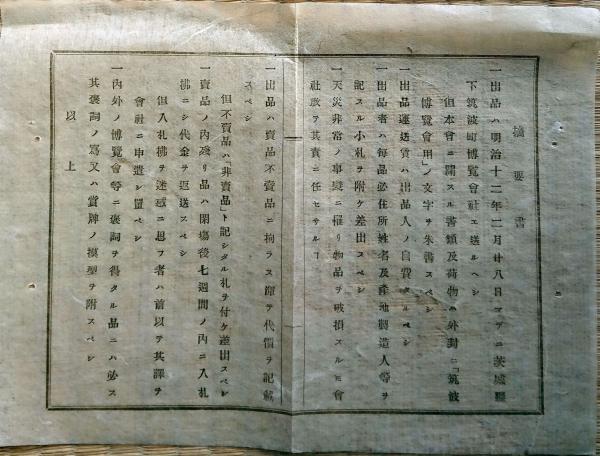 摘要書
一出品ハ明治十二年二月廿八日マデニ茨城縣
下筑波町博覽會社エ送ルヘシ
但本會ニ關スル書類及荷物ハ外封ニ「筑波
博覽會用」ノ文字ヲ朱書スベシ
一出品運送賃ハ出品人ノ自費タルベシ
一出品者ハ每品必住所姓名及產地製造人等ヲ
記スル小札ヲ附ケ差出スベシ
一天災非常ノ事變ニ罹リ物品ヲ破損スルヿ會
社敢テ其責ニ任セサルヿ
一出品ハ賣品不賣品ニ拘ラス渾テ代價ヲ記載
スベシ
但不賣品ハ「非賣品」ト記シタル札ヲ付ケ差出スベシ
一賣品ノ內殘リ品ハ閉塲後七週間ノ內ニ入札
拂ニシ代金ヲ返送スベシ
但入札拂ヲ迷惑ニ思フ者ハ前以テ其譯ヲ
會社ニ申遣シ置ベシ
一內外ノ博覽會等ニ褒詞ヲ得タル品ニハ必ス
其褒詞ノ寫又ハ賞牌ノ模型ヲ附スベシ
以上